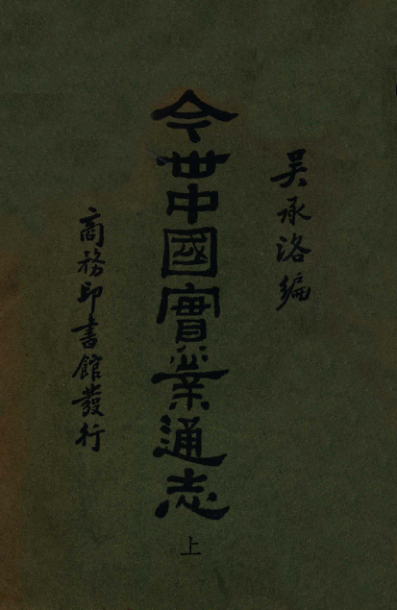 吴承洛编
今世中國實業通志
上
商務印書館發行